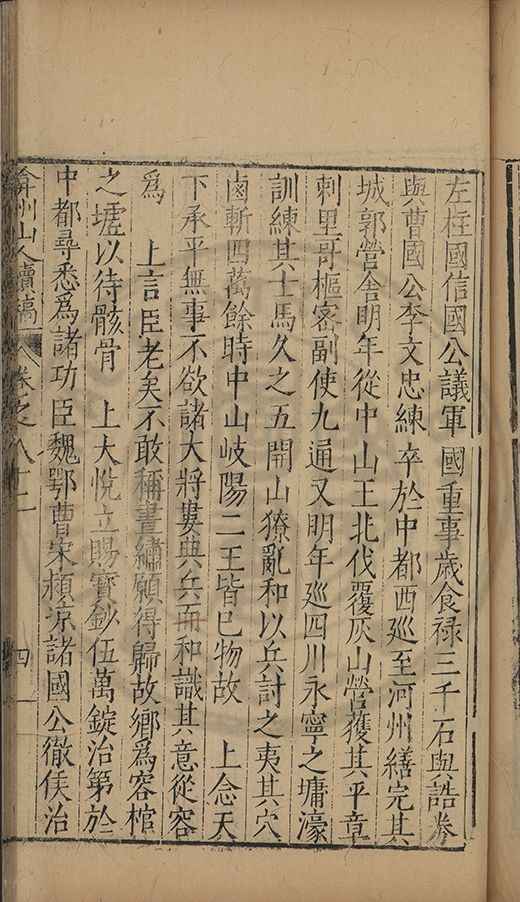 左柱國信國公議軍 國重事歲食祿三千石與誥券
與曹國公李文忠練卒於中都西巡至河州繕完其
城郭營舍明年從中山王北伐覆灰山營獲其平章
刺里哥樞密副使九通又明年巡四川永寧之墉濠
訓練其士馬久之五開山獠亂和以兵討之夷其穴
鹵斬四萬餘時中山岐陽二王皆已物故 上念天
下承平無事不欲諸大將數典兵而和識其意從容
爲 上言臣老矣不敢稱晝繡願得歸故鄉爲容棺
之壚以待骸骨 上大悅立賜寶鈔伍萬錠治第於
中都尋悉爲諸功臣魏鄂曹宋潁凉諸國公徹侯治
弇州山人續稿 卷之八十二 四